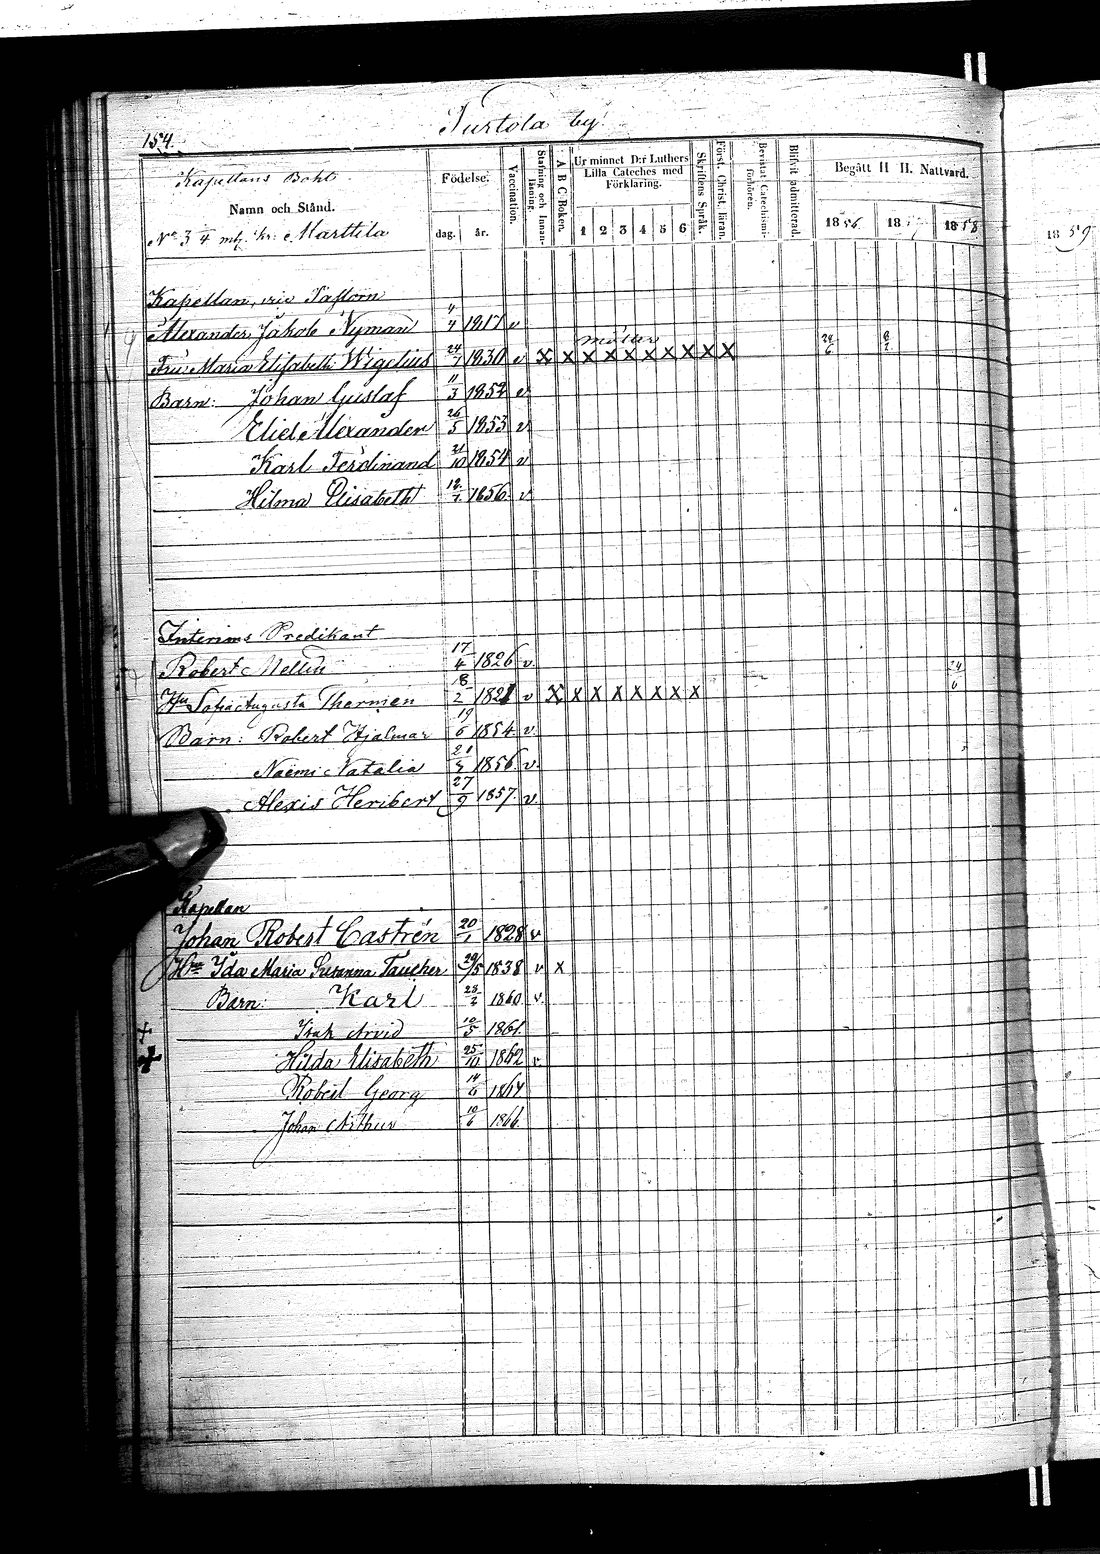 154.
Turtola by.
Kapellans Bohl
Namn och Stånd.
No 3 3/4 mtl. kr: Marttila
Födelse.
dag. år.
Vaccination.
Stafning och Innanläsning.
A B C-Boken.
Ur minnet D:r Luthers Lilla Cateches med Förklaring.
1 2 3 4 5 6
Skriftens Språk.
Först. Christ. läran.
Bevistat Catechismiförhören.
Blifvit admitterad.
Begått H H. Nattvard.
1856. 18 1858
1859
Kapellan, vice Pastorn
Alexander Jakob Nyman 11/4 1817 v
Fru Maria Elisabeth Wigelius 24/7 1830 v X X X X X X X X X X 24/6
Barn: Johan Gustaf 11/3 1852 v
Eliel Alexander 26/5 1853 v
Karl Ferdinand 21/10 1854 v
Hilma Elisabeth 1856. v
Interims Predikant
Robert Mellin 17/4 1826 v. 24/6
Hu Sofia Augusta Thermen 18/2 1821 v X X X X X X X X
Barn: Robert Hjalmar 19/6 1854. v.
Naemi Natalia 1856. v.
Alexis Heribert 27/9 1857. v.
Kapellan
Johan Robert Castrén 20/1 1828 v
Hu Ida Maria Susanna Taucher 29/5 1838 v X
Barn: Karl 28/2 1860. v.
+ Isak Arvid 10/5 1861.
+ Hilda Elisabeth 25/10 1862 v.
Robert Georg 14/6 1864
Johan Arthur 10/6 1866.